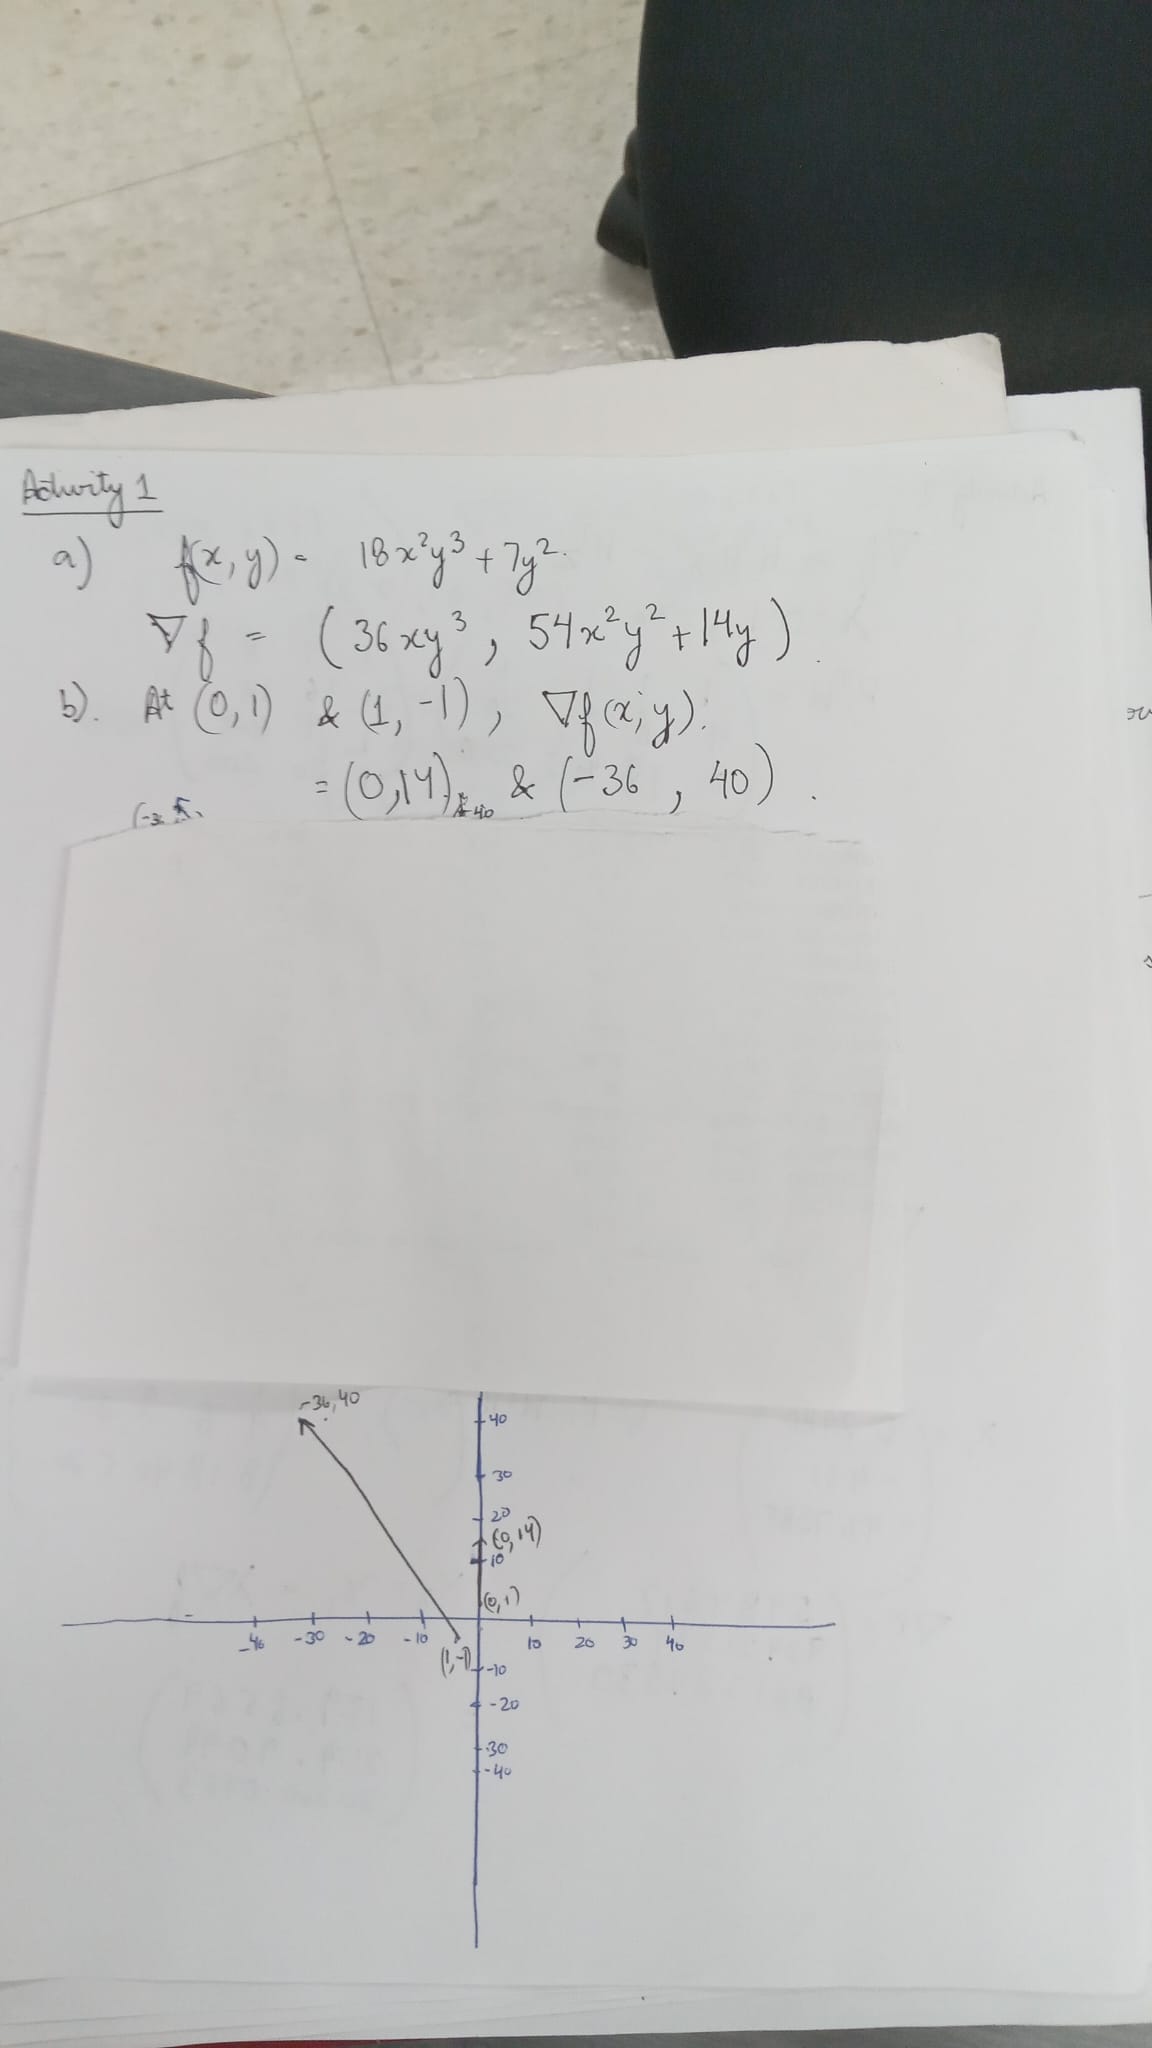 Activity 1
a) f(x, y) = 18x²y³ + 7y².
∇f = (36xy³, 54x²y² + 14y).
b). At (0,1) & (1, -1), ∇f(x, y).
= (0,14) & (-36, 40).
-36,40
40
30
20
(0,14)
10
(0,1)
-40 -30 -20 -10 10 20 30 40
(1,-1)
-10
-20
-30
-40